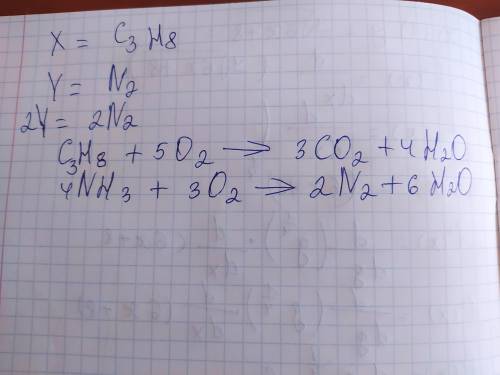 X = C₃H8
Y = N₂
2Y = 2N₂
C₃H₈ + 5O₂ → 3CO₂ + 4H₂O
4NH₃ + 3O₂ → 2N₂ + 6H₂O